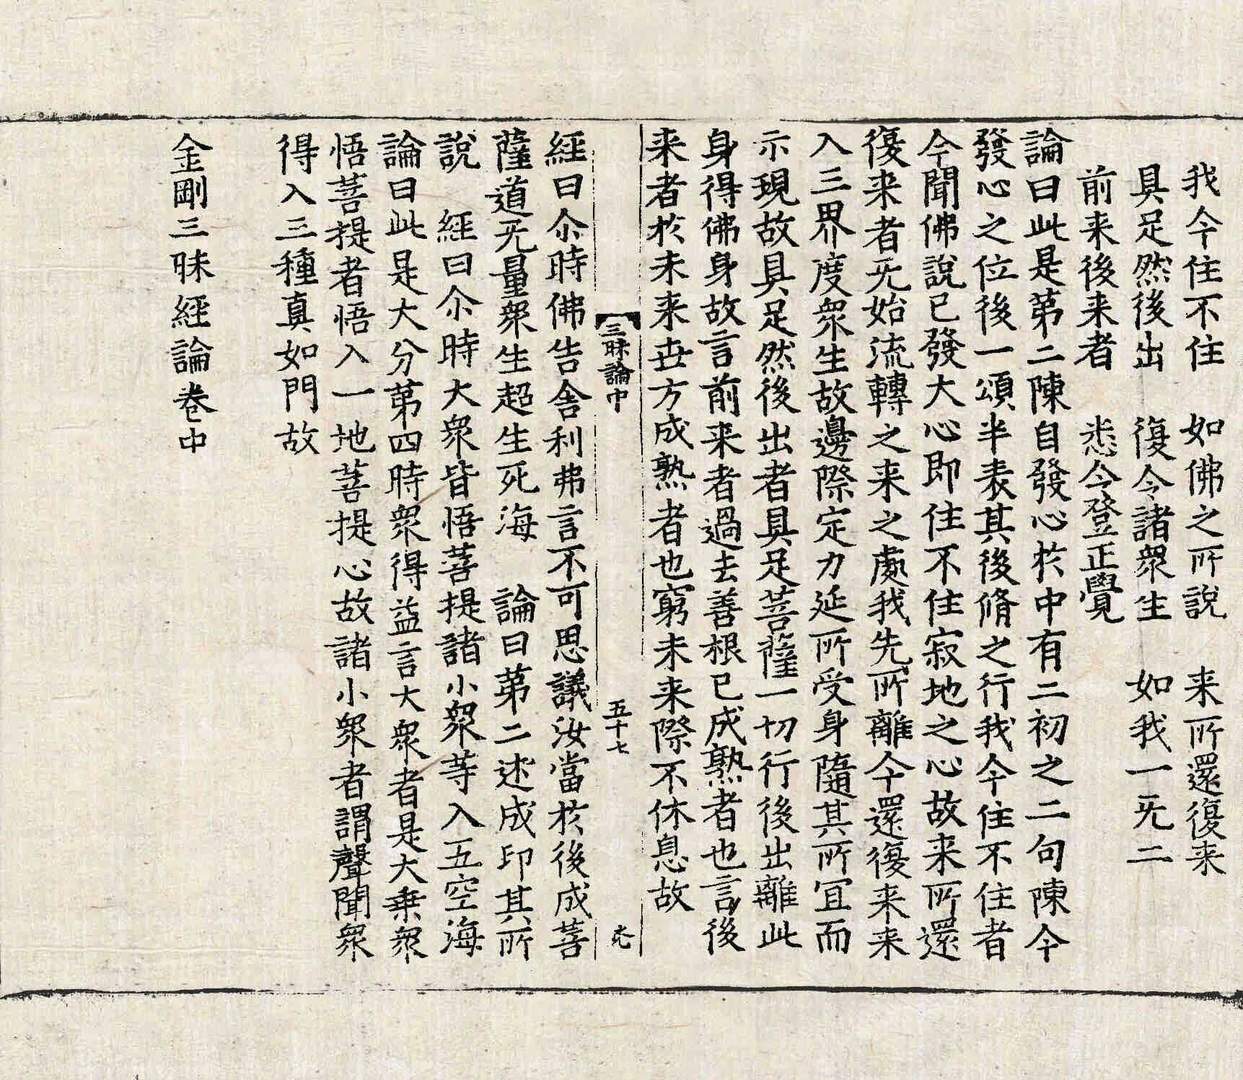 我今住不住　如佛之所說　来所還復来
具足然後出　復令諸衆生　如我一旡二
前来後来者　悉令登正覺
論曰此是第二陳自發心於中有二初之二句陳今
發心之位後一頌半表其後脩之行我今住不住者
今聞佛說已發大心即住不住寂地之心故来所還
復来者旡始流轉之来之處我先所離今還復来来
入三界度衆生故邊際定力延所受身隨其所宜而
示現故具足然後出者具足菩薩一切行後出離此
身得佛身故言前来者過去善根已成熟者也言後
来者於未来世方成熟者也窮未来際不休息故
三昧論中　五十七　光
經曰尒時佛告舍利弗言不可思議汝當於後成菩
薩道旡量衆生超生死海　論曰第二述成印其所
說　經曰尒時大衆皆悟菩提諸小衆等入五空海
論曰此是大分第四時衆得益言大衆者是大乗衆
悟菩提者悟入一地菩提心故諸小衆者謂聲聞衆
得入三種真如門故
金剛三昧經論卷中